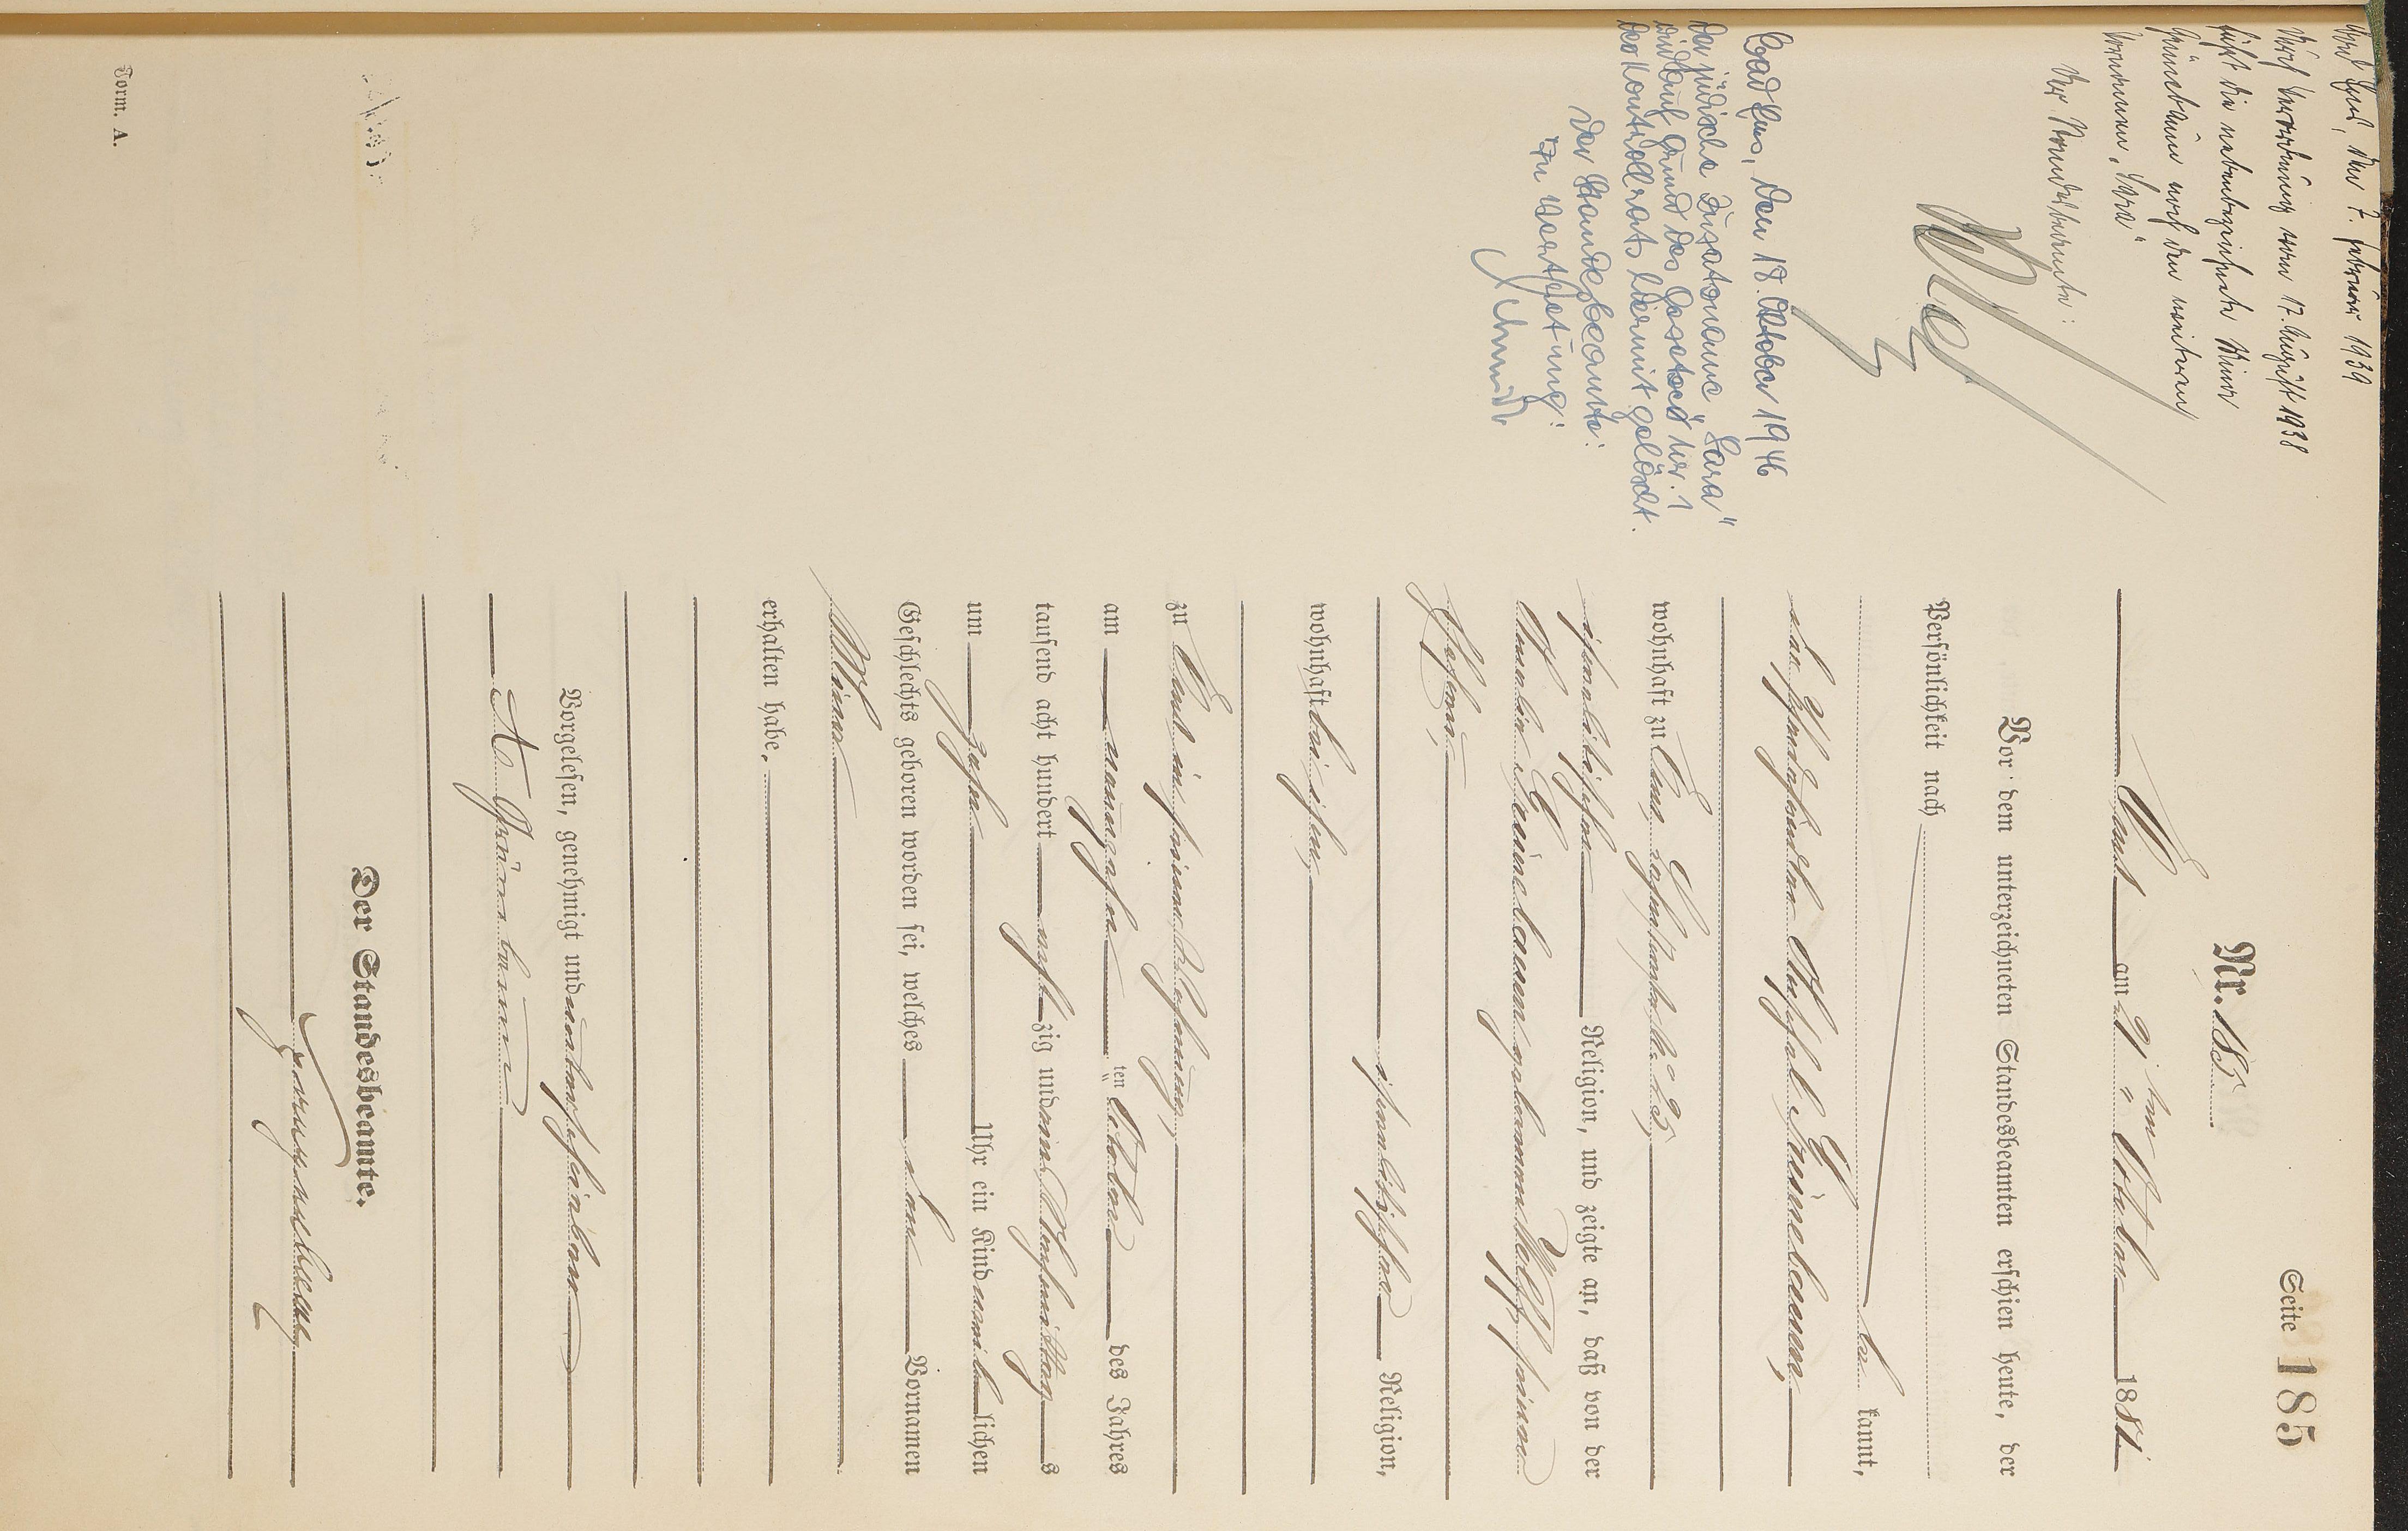 Seite 185
Nr. 185
Ems am 21 ten Oktober 1881
Vor dem unterzeichneten Standesbeamten erschien heute, der
Persönlichkeit nach
be kannt,
der Handelsmann Grünebaum,
wohnhaft zu Ems,
israelitischer Religion, und zeigte an, daß von der
Amalie Grünebaum geborenen Wolff seiner
Ehefrau,
israelitischer Religion,
wohnhaft bei ihm,
zu Ems in seiner Wohnung,
am neunzehn ten Oktober des Jahres
tausend acht hundert acht zig und eins Nachmittags
um zehn Uhr ein Kind weib lichen
Geschlechts geboren worden sei, welches den Vornamen
Mina
erhalten habe.
Vorgelesen, genehmigt und unterschrieben
A Grünebaum
Der Standesbeamte.
Form. A.
Bad Ems, den 7. Februar 1939
Nach Verordnung vom 17. August 1938
führt die nebenbezeichnete Mina
Grünebaum noch den weiteren
Vornamen „Sara"
Der Standesbeamte:
Bad Ems, den 18. Oktober 1946
Der jüdische Zusatzname „Sara"
wird auf Grund des Gesetzes Nr. 1
des Kontrollrats hiermit gelöscht.
Der Standesbeamte:
In Vertretung:
Schmidt